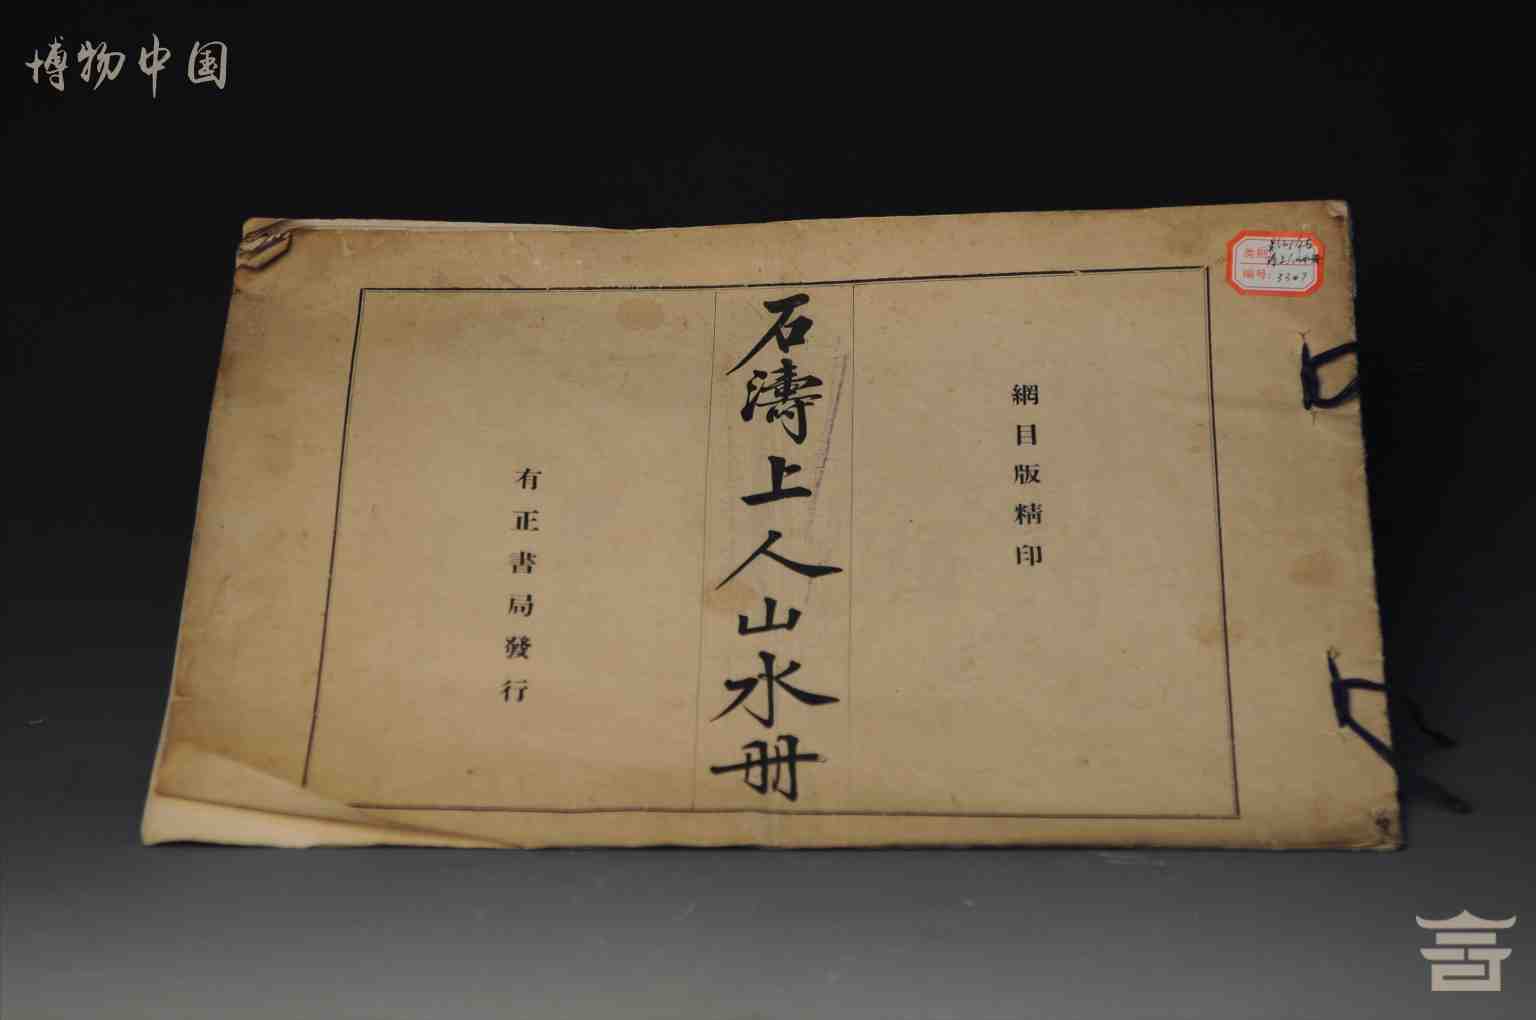 博物中国
类别:
编号: 3307
網目版精印
石濤上人山水册
有正書局發行